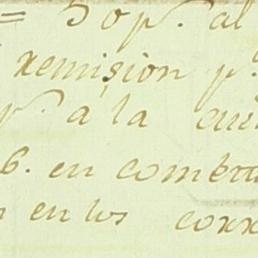 = 50 p.^s al
remision p.^
p.^r à la ciu
6. en combra
en los corr